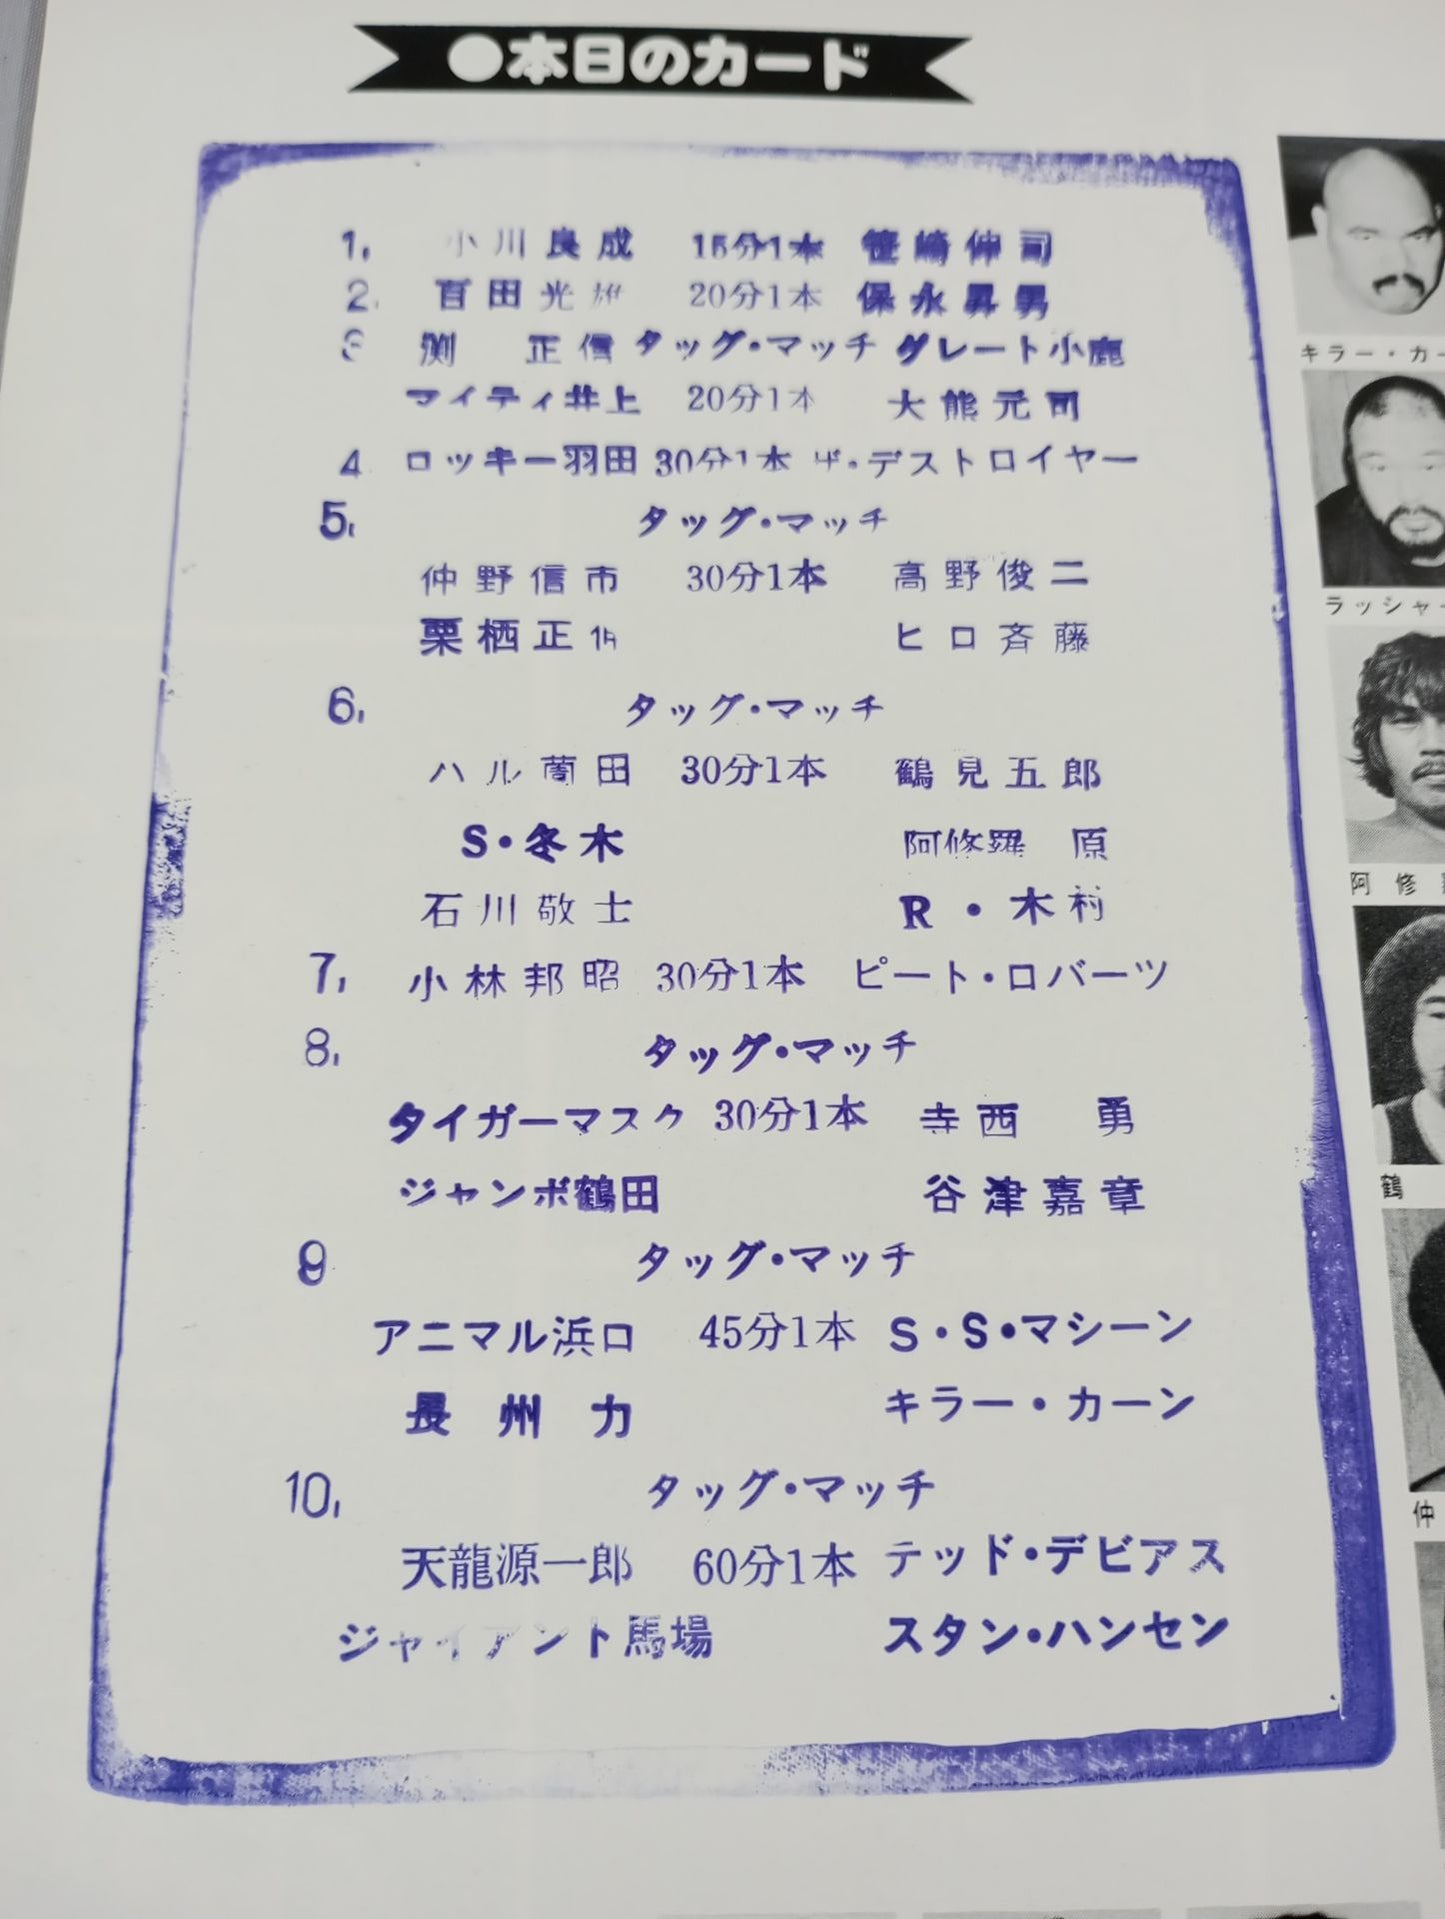 ●本日のカード
1, 小川良成 15分1本 笹崎伸司
2. 百田光雄 20分1本 保永昇男
3 渕 正信 タッグ・マッチ グレート小鹿
マイティ井上 20分1本 大熊元司
4 ロッキー羽田 30分1本 ザ・デストロイヤー
5, タッグ・マッチ
仲野信市 30分1本 高野俊二
栗栖正伸 ヒロ斉藤
6, タッグ・マッチ
ハル薗田 30分1本 鶴見五郎
S・冬木 阿修羅 原
石川敬士 R・木村
7, 小林邦昭 30分1本 ピート・ロバーツ
8, タッグ・マッチ
タイガーマスク 30分1本 寺西 勇
ジャンボ鶴田 谷津嘉章
9 タッグ・マッチ
アニマル浜口 45分1本 S・S・マシーン
長州力 キラー・カーン
10, タッグ・マッチ
天龍源一郎 60分1本 テッド・デビアス
ジャイアント馬場 スタン・ハンセン
キラー・カー
ラッシャー
阿修
鶴
仲